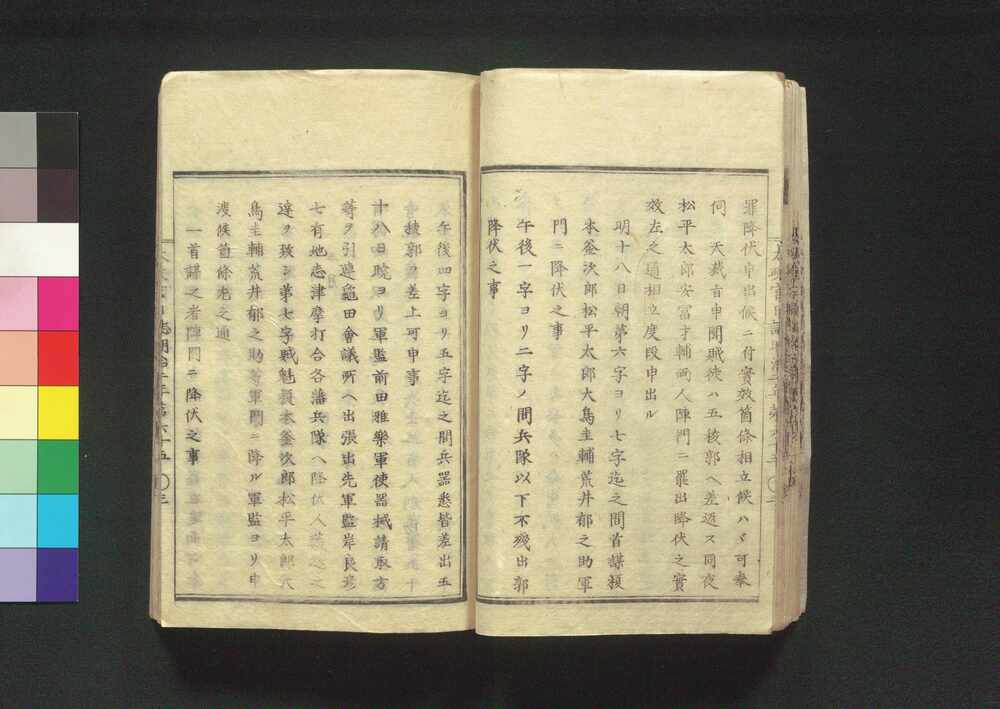 罪降伏申出候ニ付實效箇條相立候ハヾ可奉
伺　天裁旨申聞賊徒ハ五稜郭ヘ差返ス同夜
松平太郎安富才輔両人陣門ニ罷出降伏之實
效左之通相立度段申出ル
明十八日朝第六字ヨリ七字迄之間首謀榎
本釜次郎松平太郎大鳥圭輔荒井郁之助軍
門ニ降伏之事
午後一字ヨリ二字ノ間兵隊以下不残出郭
降伏之事
午後四字ヨリ五字迄之間兵器悉皆差出五
稜郭ヲ差上可申事
十八日暁ヨリ軍監前田雅樂軍使器械請取方
等ヲ引連龜田會議所ヘ出張出先軍監岸良彦
七有地志津摩打合各藩兵隊ヘ降伏人
達ヲ致シ第七字賊魁榎本釜次郎松平太郎大
鳥圭輔荒井郁之助等軍門ニ降ル軍監ヨリ申
渡候箇條左之通
一首謀之者陣門ニ降伏之事